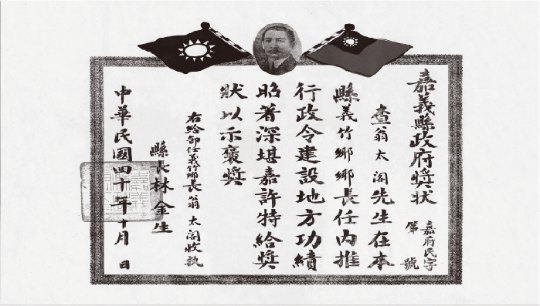 嘉義縣政府獎狀
嘉府民字
第　號
查翁太閣先生在本
縣義竹鄉鄉長任內推
行政令建設地方功績
昭著深堪嘉許特給獎
狀以示褒獎
右給卸任義竹鄉長翁太閣收執
縣長林金生
中華民國四十年十月　日